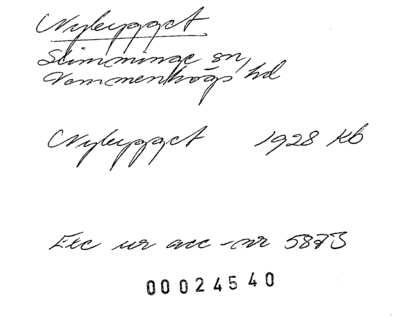 Nybygget
Slimminge sn,
Vemmenhögs hd
Nybygget 1928 Kb
Exc ur acc-nr 5873
00024540